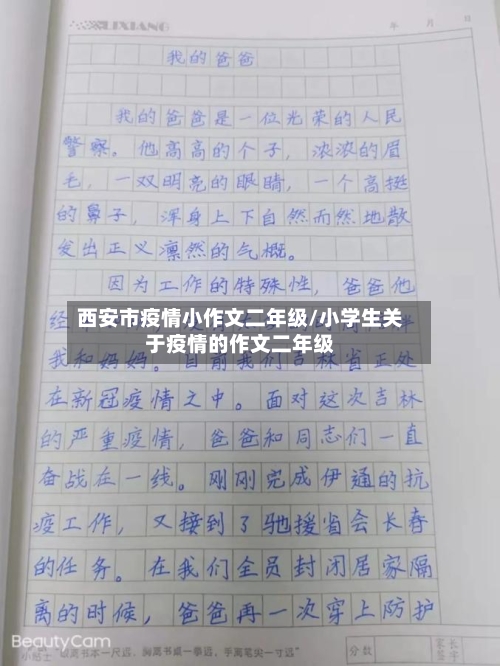 LIXIANG
年 月 日
我的爸爸
我的爸爸是一位光荣的人民
警察。他高高的个子，浓浓的眉
毛，一双明亮的眼睛，一个高挺
的鼻子，浑身上下自然而然地散
发出正义凛然的气概。
因为工作的特殊性，爸爸他
经
西安市疫情小作文二年级/小学生关
于疫情的作文二年级
我和妈妈。目前我们吉林省正处
在新冠疫情之中。面对这次吉林
的严重疫情，爸爸和同志们一直
奋战在一线。刚刚完成伊通的抗
疫工作，又接到了驰援省会长春
的任务。在我们全员封闭居家隔
离的时候，爸爸再一次穿上防护
BeautyCam
小贴士 眼离书本一尺远，胸离书桌一拳远，手离笔尖一寸远
分数
家长
签字